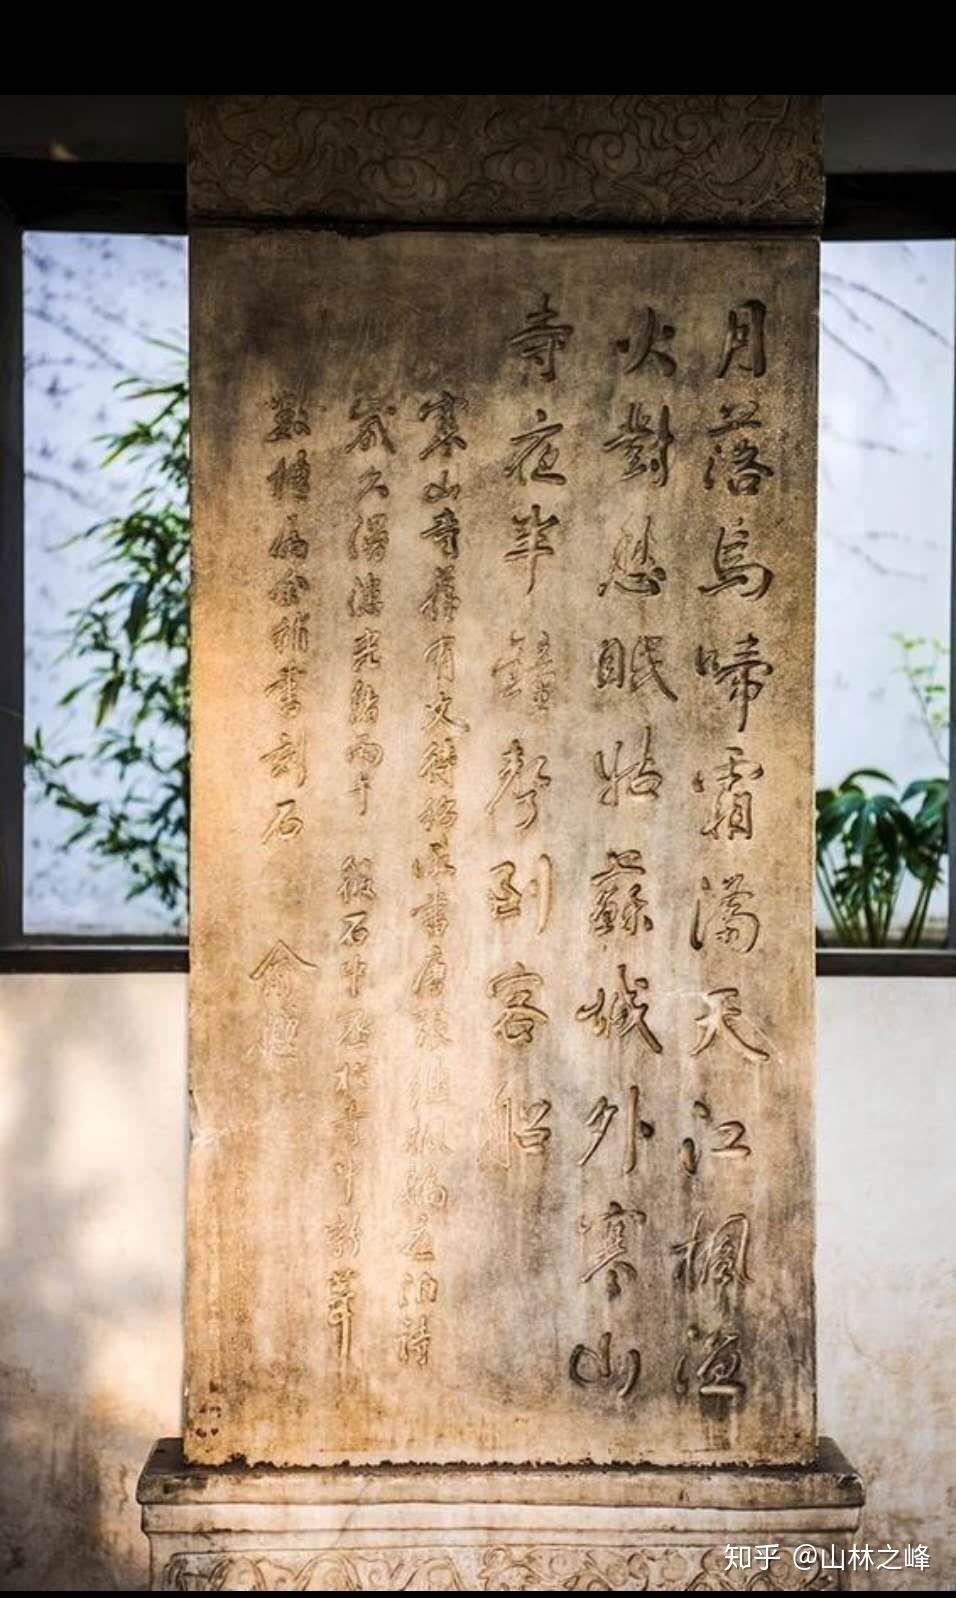 月落烏啼霜滿天江楓漁
火對愁眠姑蘇城外寒山
寺夜半鐘聲到客船
寒山寺舊有文待詔所書唐張繼楓橋夜泊詩
歲久漫漶光緒丙午 筱石中丞於寺中新葺
數楹屬余補書刻石 俞樾
知乎 @山林之峰